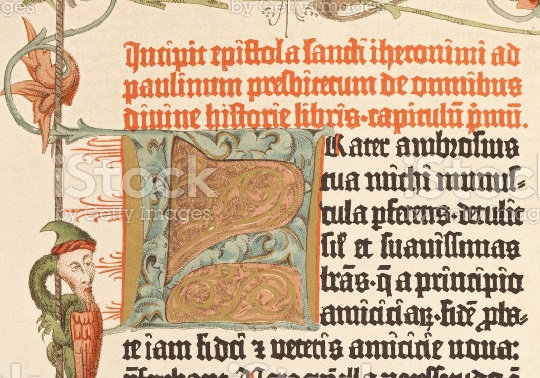 Incipit epistola sancti iheronimi ad
paulinum presbiterum de omnibus
divine historie libris. capitulū p̄mū.
FRater ambrosius
tua michi munus-
cula ꝑferens. detulit
sil̄ et suavissimas
lr̄as. q̄ a principio
amiciciaꝝ. fidē ꝓba-
te iam fidei ⁊ veteris amicicie nova:
iStock
by Getty Images
iStock
by Getty Images
iStock
by Getty Images